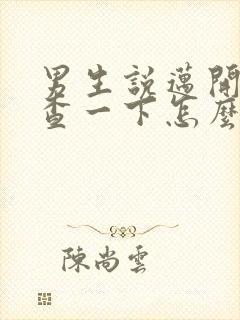 男生說邁開
查一下怎麼
陳尚雲